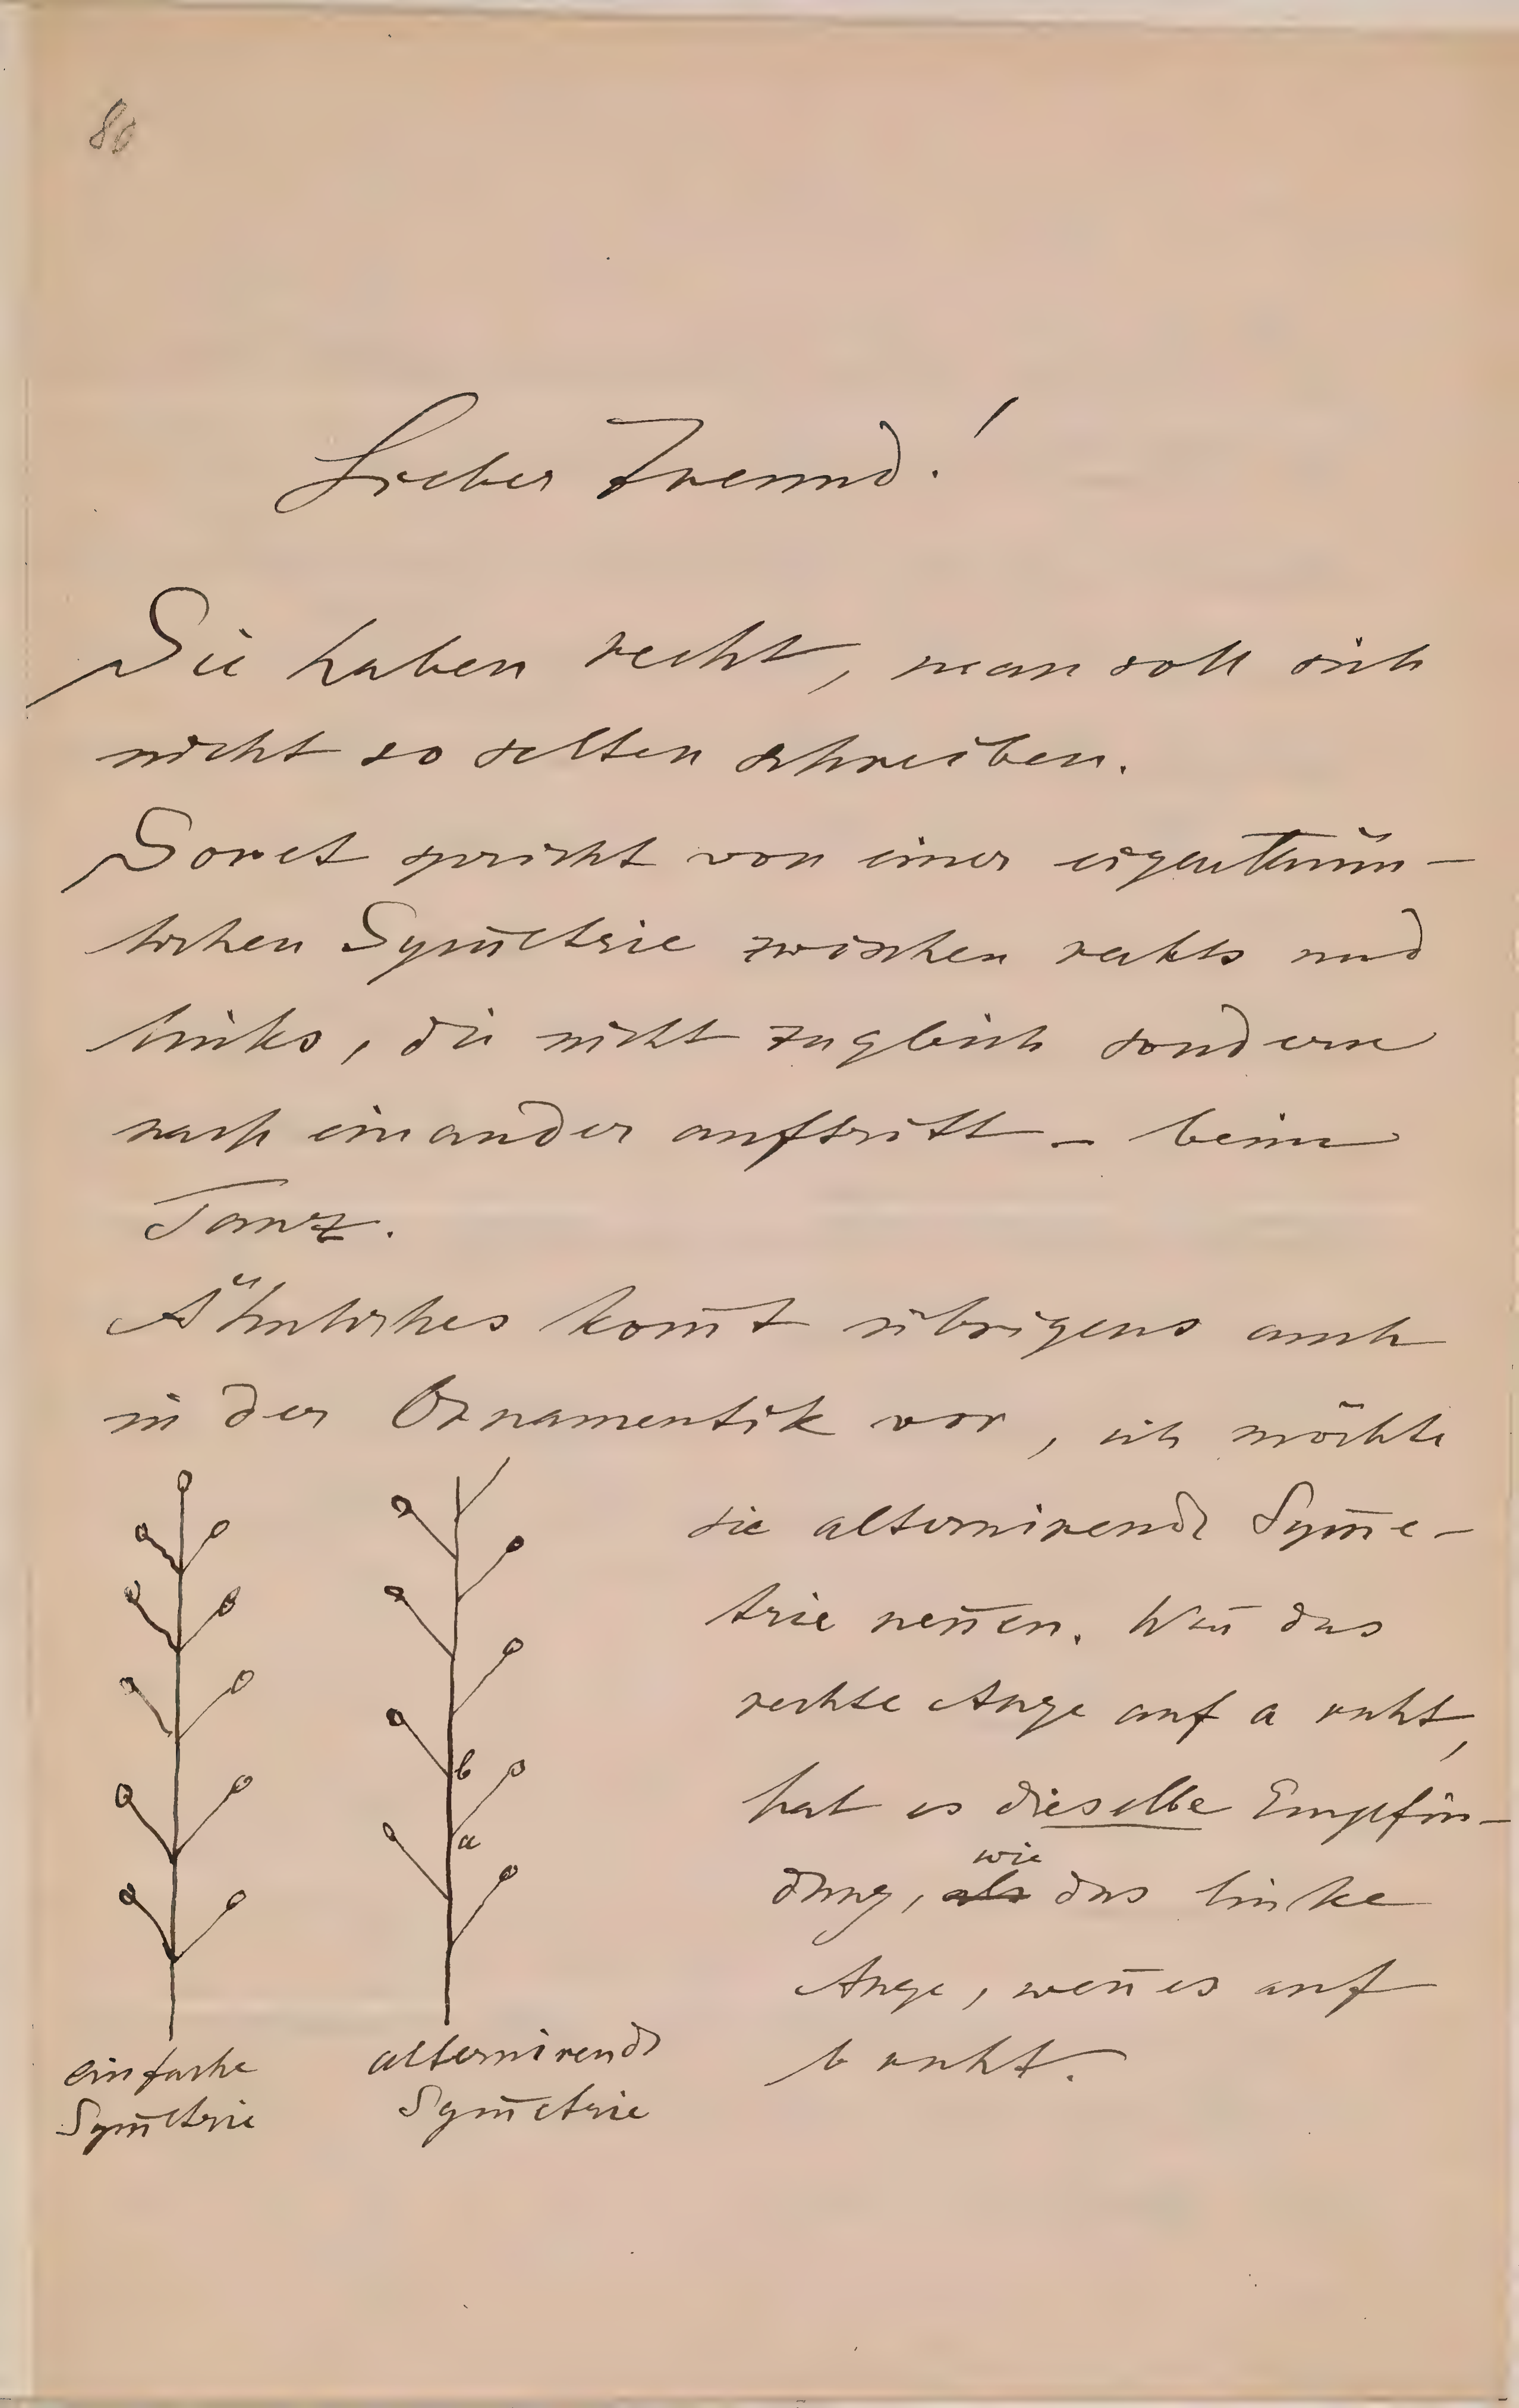 80
Lieber Freund!
Sie haben recht, man soll sich
nicht so selten schreiben.
Soret spricht von einer eigenthüm-
lichen Sym̄etrie zwischen rechts und
links, die nicht zugleich sondern
nach einander auftritt – beim
Tanz.
Ähnliches kom̄t übrigens auch
in der Ornamentik vor, ich möchte
sie alternirende Sym̄e-
trie nen̄en. Wen̄ das
rechte Auge auf a ruht,
hat es dieselbe Empfin-
wie
dung, als das linke
Auge, wen̄ es auf
b ruht.
b
a
einfache
Sym̄etrie
alternirende
Sym̄etrie